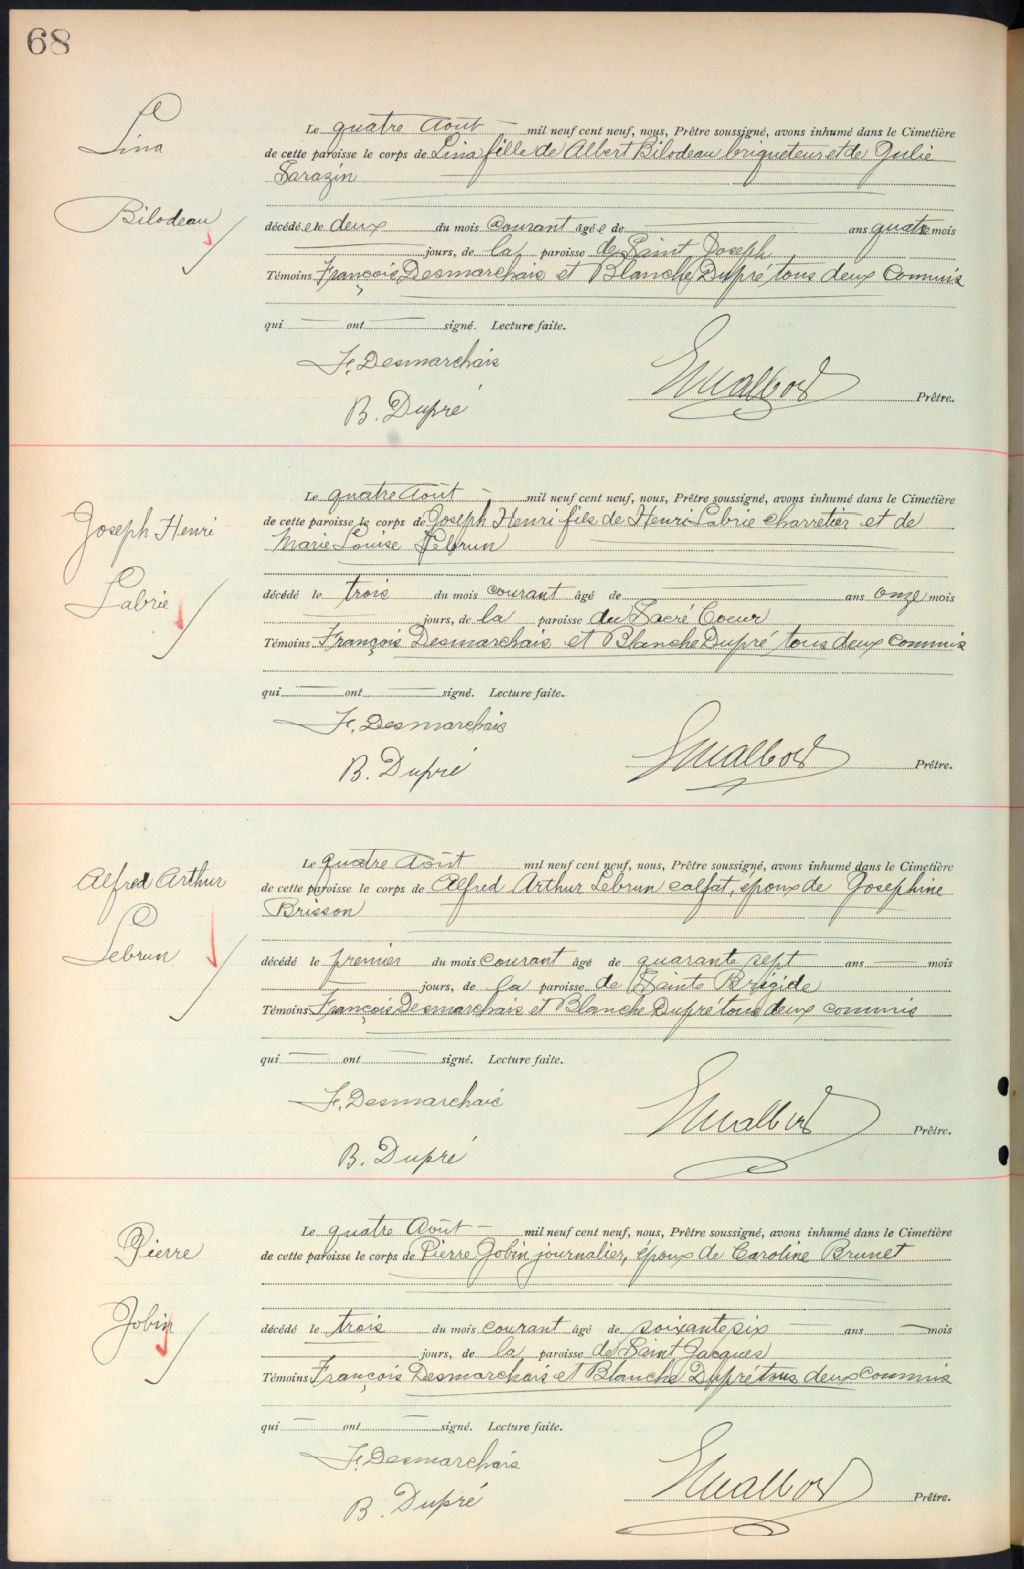 68
Lina
Bilodeau
Le quatre Août — mil neuf cent neuf, nous, Prêtre soussigné, avons inhumé dans le Cimetière
de cette paroisse le corps de Lina fille de Albert Bilodeau briqueteur et de Julie
Sarazin
décédée le deux du mois courant âgée de — ans quatre mois
— jours, de la paroisse de Saint Joseph
Témoins François Desmarchais et Blanche Dupré tous deux commis
qui — ont — signé. Lecture faite.
F. Desmarchais
B. Dupré
Prêtre.
Joseph Henri
Labrie
Le quatre Août — mil neuf cent neuf, nous, Prêtre soussigné, avons inhumé dans le Cimetière
de cette paroisse le corps de Joseph Henri fils de Henri Labrie charretier et de
Marie Louise Lebrun
décédé le trois du mois courant âgé de — ans onze mois
jours, de la paroisse du Sacré Coeur
Témoins François Desmarchais et Blanche Dupré tous deux commis
qui — ont — signé. Lecture faite.
F. Desmarchais
B. Dupré
Prêtre.
Alfred Arthur
Lebrun
Le quatre Août mil neuf cent neuf, nous, Prêtre soussigné, avons inhumé dans le Cimetière
de cette paroisse le corps de Alfred Arthur Lebrun calfat, époux de Josephine
Brisson
décédé le premier du mois courant âgé de quarante sept ans — mois
— jours, de la paroisse de Sainte Brigide
Témoins François Desmarchais et Blanche Dupré tous deux commis
qui — ont — signé. Lecture faite.
F. Desmarchais
B. Dupré
Prêtre.
Pierre
Jobin
Le quatre Août — mil neuf cent neuf, nous, Prêtre soussigné, avons inhumé dans le Cimetière
de cette paroisse le corps de Pierre Jobin journalier, époux de Caroline Brunet
décédé le trois du mois courant âgé de soixante six — ans — mois
jours, de la paroisse de Saint Jacques
Témoins François Desmarchais et Blanche Dupré tous deux commis
qui — ont — signé. Lecture faite.
F. Desmarchais
B. Dupré
Prêtre.